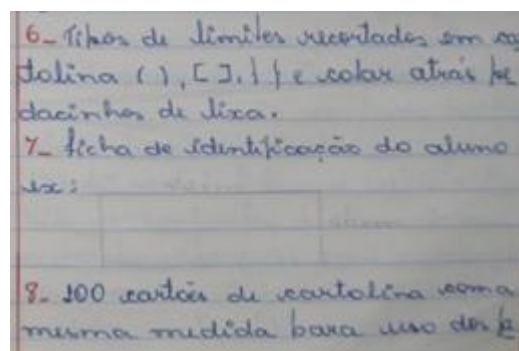 6- Tipos de limites recortados em ca
tolina ( ), [ ], { } e colar atrás pe
dacinhos de lixa.
7- ficha de identificação do aluno
ex:
8- 100 cartões de cartolina com a
mesma medida para uso dos